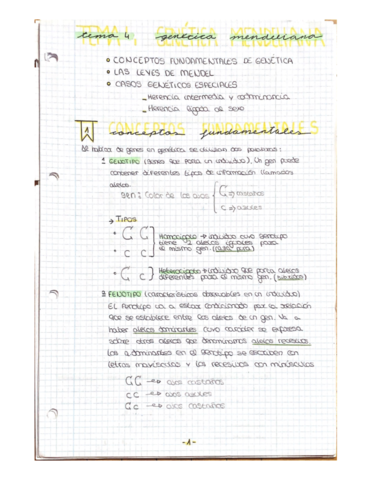 TEMA 4. GENÉTICA MENDELIANA
tema 4. genética mendeliana
CONCEPTOS FUNDAMENTALES DE GENÉTICA
LAS LEYES DE MENDEL
CASOS GENÉTICOS ESPECIALES
Herencia intermedia y codominancia
Herencia ligada al sexo
1 CONCEPTOS FUNDAMENTALES
conceptos fundamentales
Al hablar de genes en genética se utilizan dos
1 GENOTIPO (genes que porta un individuo). Un gen puede
contener diferentes tipos de información llamados
alelos.
Gen: Color de los ojos
C → marrones
c → azules
→ TIPOS
C C
c c
Homocigoto → individuo cuyo genotipo
tiene 2 alelos iguales para
el mismo gen.
C c
Heterocigoto → individuo que porta alelos
diferentes para el mismo gen.
FENOTIPO (características observables en un individuo)
El fenotipo va a estar condicionado por la relación
que se establece entre los alelos de un gen. Va a
haber alelos dominantes cuyo carácter se expresa
sobre otros alelos que denominamos alelos recesivos.
Los dominantes en el genotipo se escriben con
letras mayúsculas y los recesivos con minúsculas
CC → ojos castaños
cc → ojos azules
Cc → ojos castaños
-1-